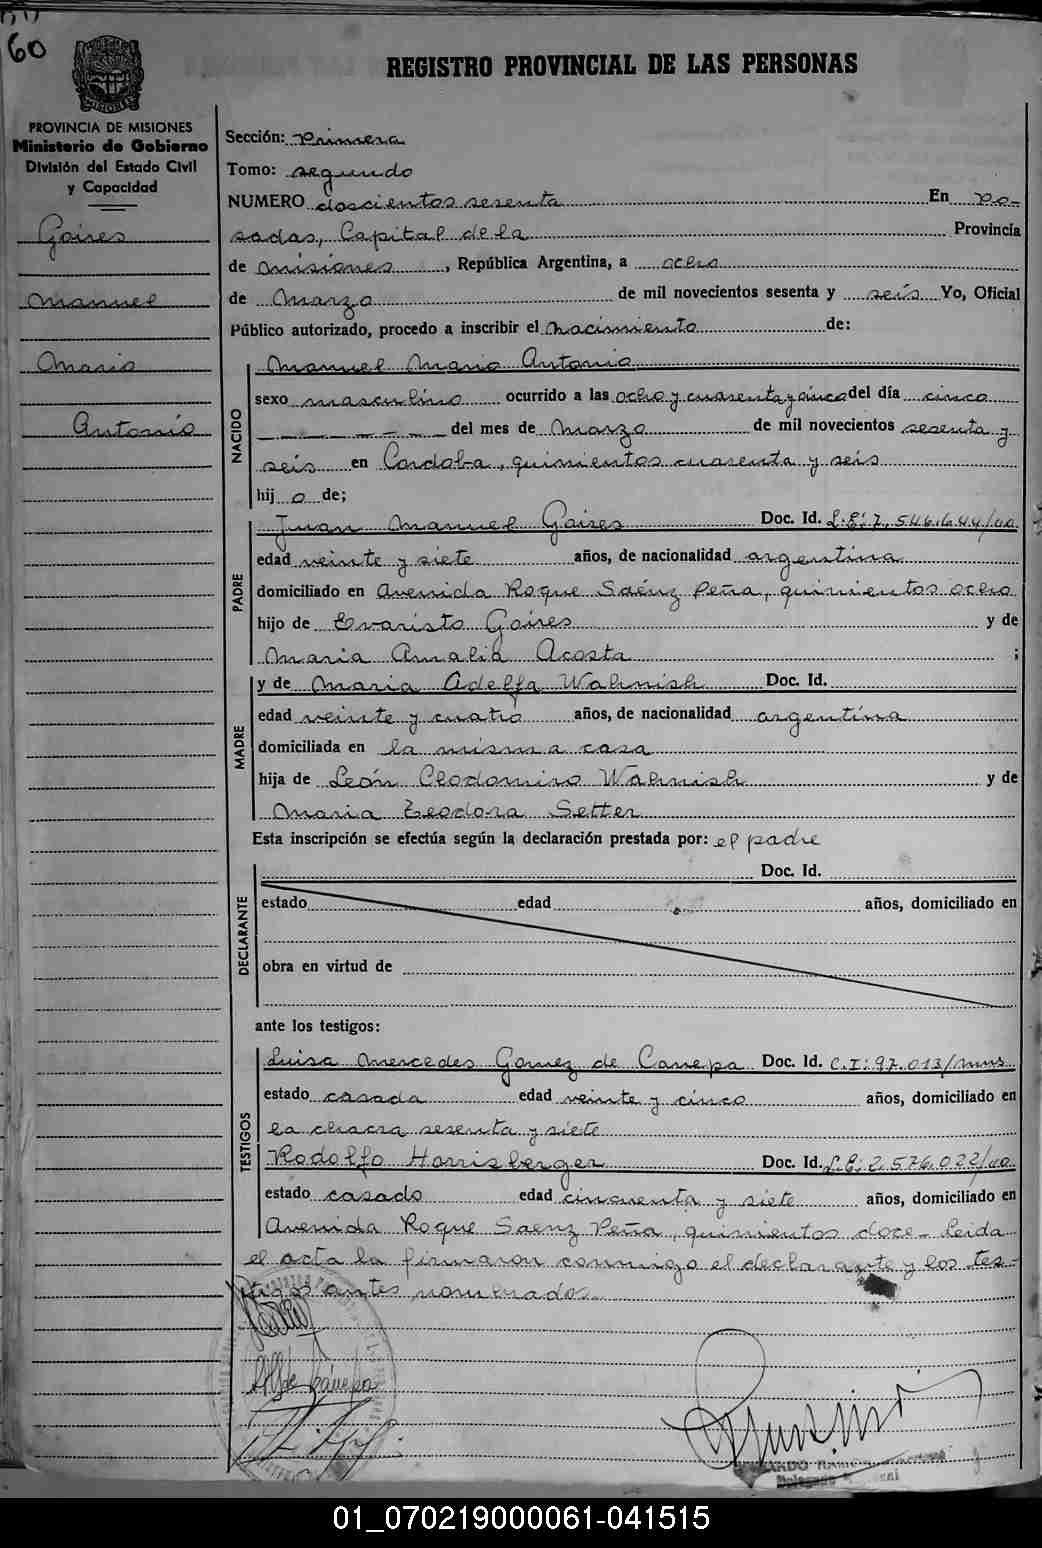 60
REGISTRO PROVINCIAL DE LAS PERSONAS
PROVINCIA DE MISIONES
Ministerio de Gobierno
División del Estado Civil
y Capacidad
Goires
Manuel
Mario
Antonio
Sección: Primera
Tomo: segundo
NUMERO doscientos sesenta En Po-
sadas, Capital de la Provincia
de Misiones, República Argentina, a ocho
de Marzo de mil novecientos sesenta y seis Yo, Oficial
Público autorizado, procedo a inscribir el nacimiento de:
NACIDO
Manuel Mario Antonio
sexo masculino ocurrido a las ocho y cuarenta y cinco del día cinco
del mes de Marzo de mil novecientos sesenta y
seis en Cordoba, quinientos cuarenta y seis
hij o de;
PADRE
Juan Manuel Goires Doc. Id. L.E: 7.546.644/
edad veinte y siete años, de nacionalidad argentina
domiciliado en Avenida Roque Saénz Peña, quinientos ocho
hijo de Evaristo Goires y de
Maria Amalia Acosta ;
MADRE
y de Maria Adelfa Walnish Doc. Id.
edad veinte y cuatro años, de nacionalidad argentina
domiciliada en la misma casa
hija de León Clodomiro Walnish y de
Maria Teodora Setter
Esta inscripción se efectúa según la declaración prestada por: el padre
DECLARANTE
Doc. Id.
estado edad años, domiciliado en
obra en virtud de
ante los testigos:
TESTIGOS
Luisa Mercedes Gomez de Canepa Doc. Id. C.I: 97.013/Mnes
estado casada edad veinte y cinco años, domiciliado en
la chacra sesenta y siete
Rodolfo Harrisberger Doc. Id. L.E: 2.576.022/
estado casado edad cincuenta y siete años, domiciliado en
Avenida Roque Saenz Peña, quinientos doce - Leida
el acta la firmaron conmigo el declarante y los tes-
tigos antes nombrados.
de Canepa
01_070219000061-041515